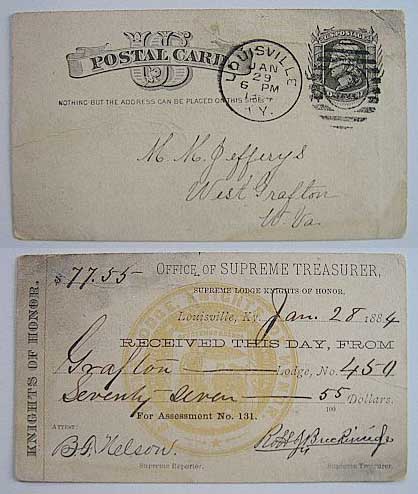 POSTAL CARD
U S
NOTHING BUT THE ADDRESS CAN BE PLACED ON THIS SIDE.
LOUISVILLE
JAN
29
6 PM
KY.
U.S. POSTAGE
M. M. Jefferys
West Grafton
W. Va.
KNIGHTS OF HONOR.
$77.55
OFFICE OF SUPREME TREASURER,
SUPREME LODGE KNIGHTS OF HONOR.
Louisville, Ky. Jan. 28 1884
RECEIVED THIS DAY, FROM
Grafton Lodge, No. 450
Seventy Seven 55/100 Dollars.
For Assessment No. 131.
ATTEST:
B. F. Nelson.
Supreme Reporter.
Supreme Treasurer.